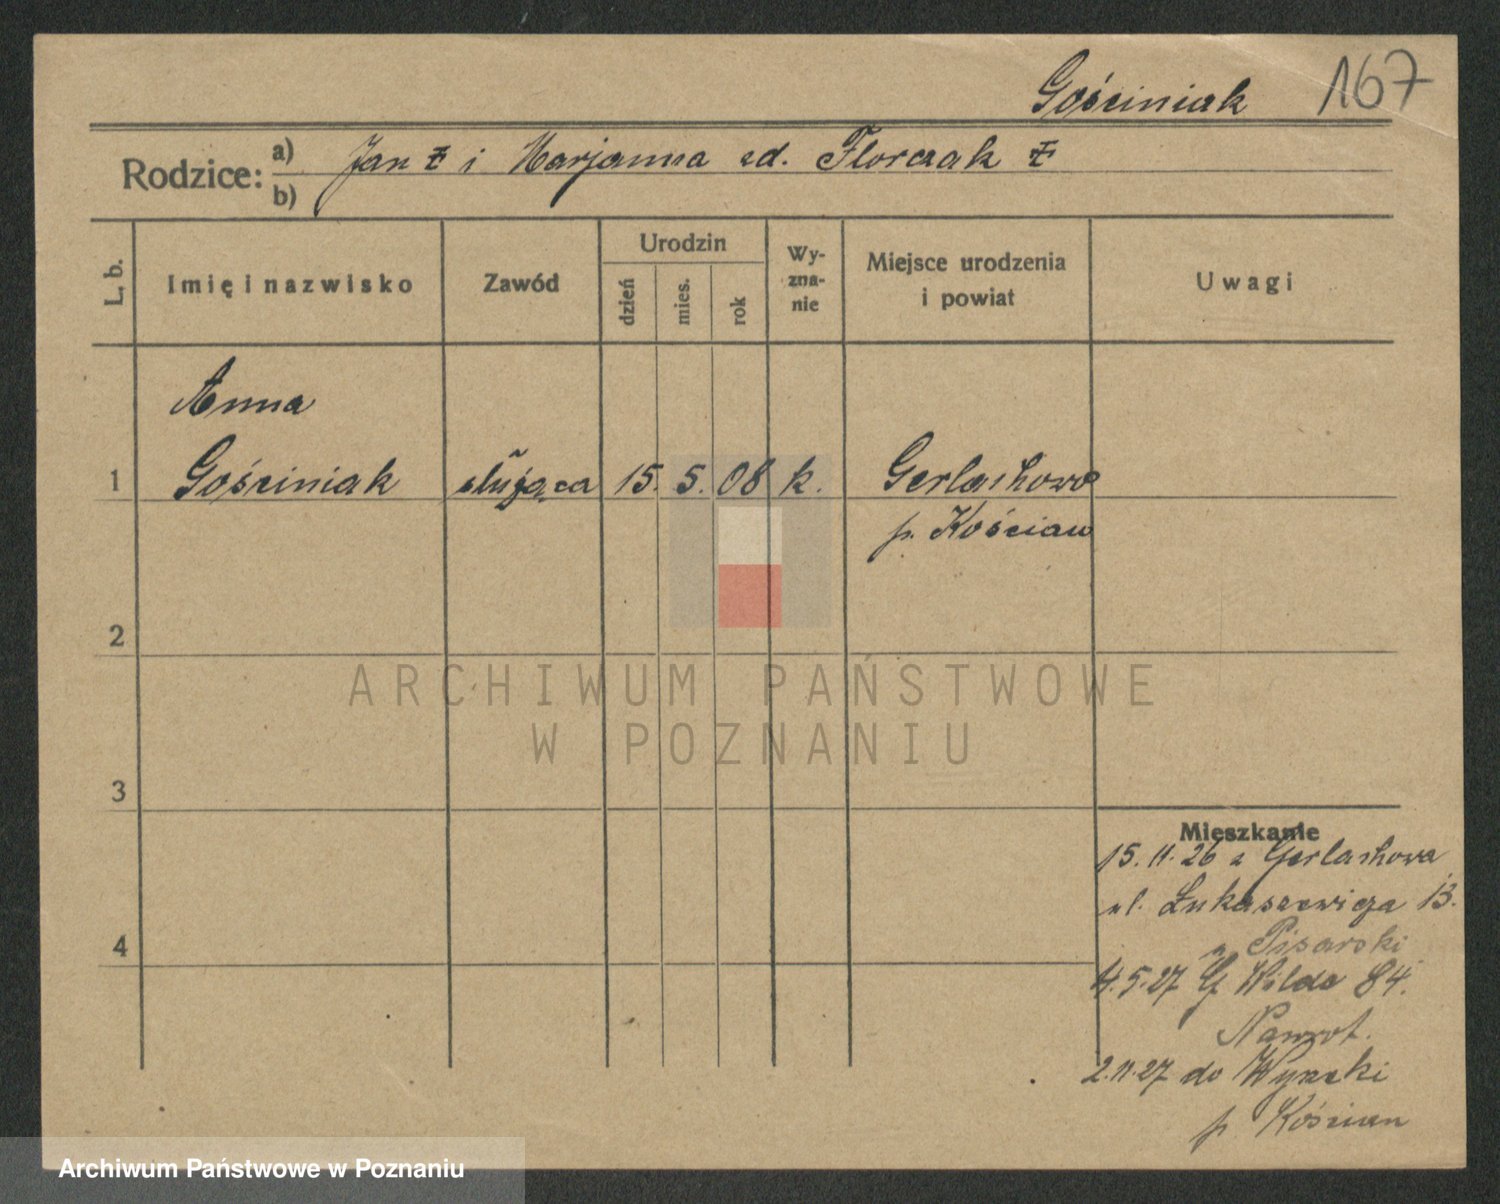 Gościniak 167
Rodzice: a) Jan ‡ i Marjanna zd. Florczak ‡
b)
L. b. Imię i nazwisko Zawód Urodzin dzień mies. rok Wy-zna-nie Miejsce urodzenia i powiat Uwagi
Anna
1 Gościniak służąca 15. 5. 08 k. Gerlachowo
p. Kościan
2
ARCHIWUM PAŃSTWOWE
W POZNANIU
3
Mieszkanie
15. 11. 26 z Gerlachowa
ul. Łukaszewicza 13.
Pisarski
4
4. 5. 27 G Wilda 84.
Nawrot.
2. 11. 27 do
p. Kościan
Archiwum Państwowe w Poznaniu